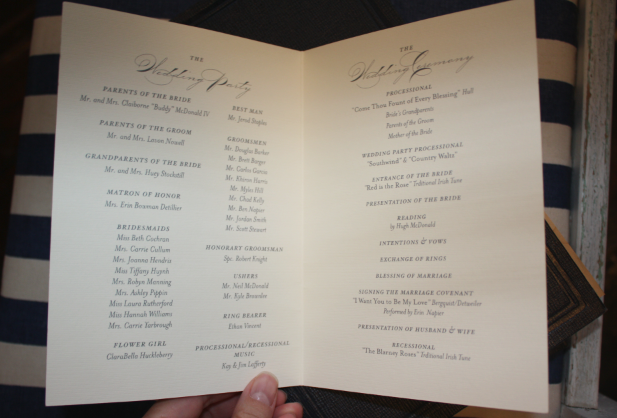 THE
Wedding Party
PARENTS OF THE BRIDE
Mr. and Mrs. Claiborne "Buddy" McDonald IV
PARENTS OF THE GROOM
Mr. and Mrs. Lavon Nowell
GRANDPARENTS OF THE BRIDE
Mr. and Mrs. Huey Stockstill
MATRON OF HONOR
Mrs. Erin Bowman Detillier
BRIDESMAIDS
Miss Beth Cochran
Mrs. Carrie Cullum
Mrs. Joanna Hendrix
Miss Tiffany Huynh
Mrs. Robyn Manning
Mrs. Ashley Pippin
Miss Laura Rutherford
Miss Hannah Williams
Mrs. Carria Yarbrough
FLOWER GIRL
ClaraBelle Huckleberry
BEST MAN
Mr. Jerrod Peoples
GROOMSMEN
Mr. Douglas Barber
Mr. Brett Barger
Mr. Carlos Garcia
Mr. Khyron Harris
Mr. Myles Hill
Mr. Chad Kelly
Mr. Ben Napier
Mr. Jordan Smith
Mr. Scott Stewart
HONORARY GROOMSMAN
Spc. Robert Knight
USHERS
Mr. Neil McDonald
Mr. Kyle Brownlee
RING BEARER
Ethan Vincent
PROCESSIONAL/RECESSIONAL
MUSIC
Kay & Jim Lafferty
THE
Wedding Ceremony
PROCESSIONAL
"Come Thou Fount of Every Blessing" Hall
Bride's Grandparents
Parents of the Groom
Mother of the Bride
WEDDING PARTY PROCESSIONAL
"Southwind" & "Country Waltz"
ENTRANCE OF THE BRIDE
"Red is the Rose" Traditional Irish Tune
PRESENTATION OF THE BRIDE
READING
by Hugh McDonald
INTENTIONS & VOWS
EXCHANGE OF RINGS
BLESSING OF MARRIAGE
SIGNING THE MARRIAGE COVENANT
"I Want You to Be My Love" Bergquist/Detweiler
Performed by Erin Napier
PRESENTATION OF HUSBAND & WIFE
RECESSIONAL
"The Blarney Roses" Traditional Irish Tune